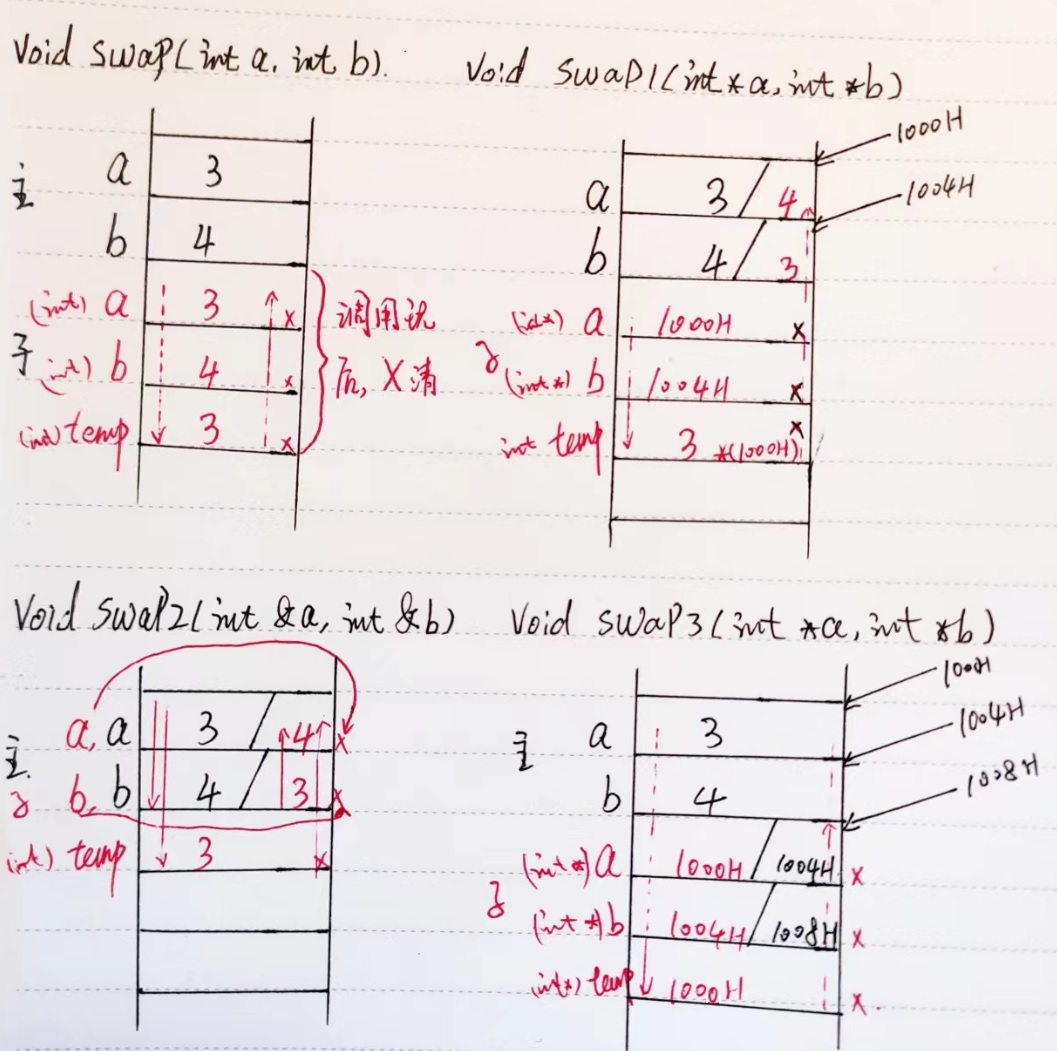 Void swap(int a, int b).
Void swap1(int *a, int *b)
主
a 3
b 4
(int) a 3 x
子
(int) b 4 x
(int) temp 3 x
调用说
后, X清
1000H
1004H
a 3 / 4
b 4 / 3
(int*) a 1000H x
子
(int*) b 1004H x
int temp 3 *(1000H) x
Void swap2(int &a, int &b)
Void swap3(int *a, int *b)
主.
a, a 3 / 4 x
子 b, b 4 / 3 x
(int) temp 3 x
1000H
1004H
1008H
主
a 3
b 4
(int*) a 1000H / 1004H x
子
(int *) b 1004H / 1008H x
(int*) temp 1000H x